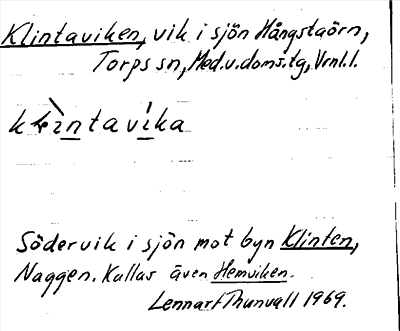 Klintaviken, vik i sjön Hångstaörn,
Torps sn, Med.v.doms.tg, Vrnl.l.
klìntavíka
Södervik i sjön mot byn Klinten,
Naggen. Kallas även Hemviken.
Lennart Thunvall 1969.